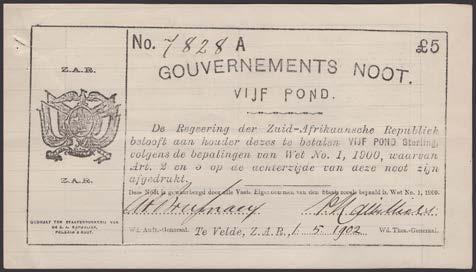 No. 7828 A
£5
GOUVERNEMENTS NOOT.
VIJF POND.
Z.A.R.
Z.A.R.
De Regeering der Zuid-Afrikaansche Republiek
belooft aan houder dezes te betalen VIJF POND Sterling,
volgens de bepalingen van Wet No. 1, 1900, waarvan
Art. 2 en 3 op de achterzijde van deze noot zijn
afgedrukt.
Deze Noot is gewaarborgd door alle Vaste Eigendommen van den Staat zooals bepaald is, Wet No. 1, 1900.
Wd. Audt.-Generaal.
Te Velde, Z.A.R., 1 . 5 . 1902
Wd. Thes.-Generaal.
GEDRUKT TER STAATSDRUKKERIJ VAN
DE Z. A. REPUBLIEK,
PELGRIM'S RUST.